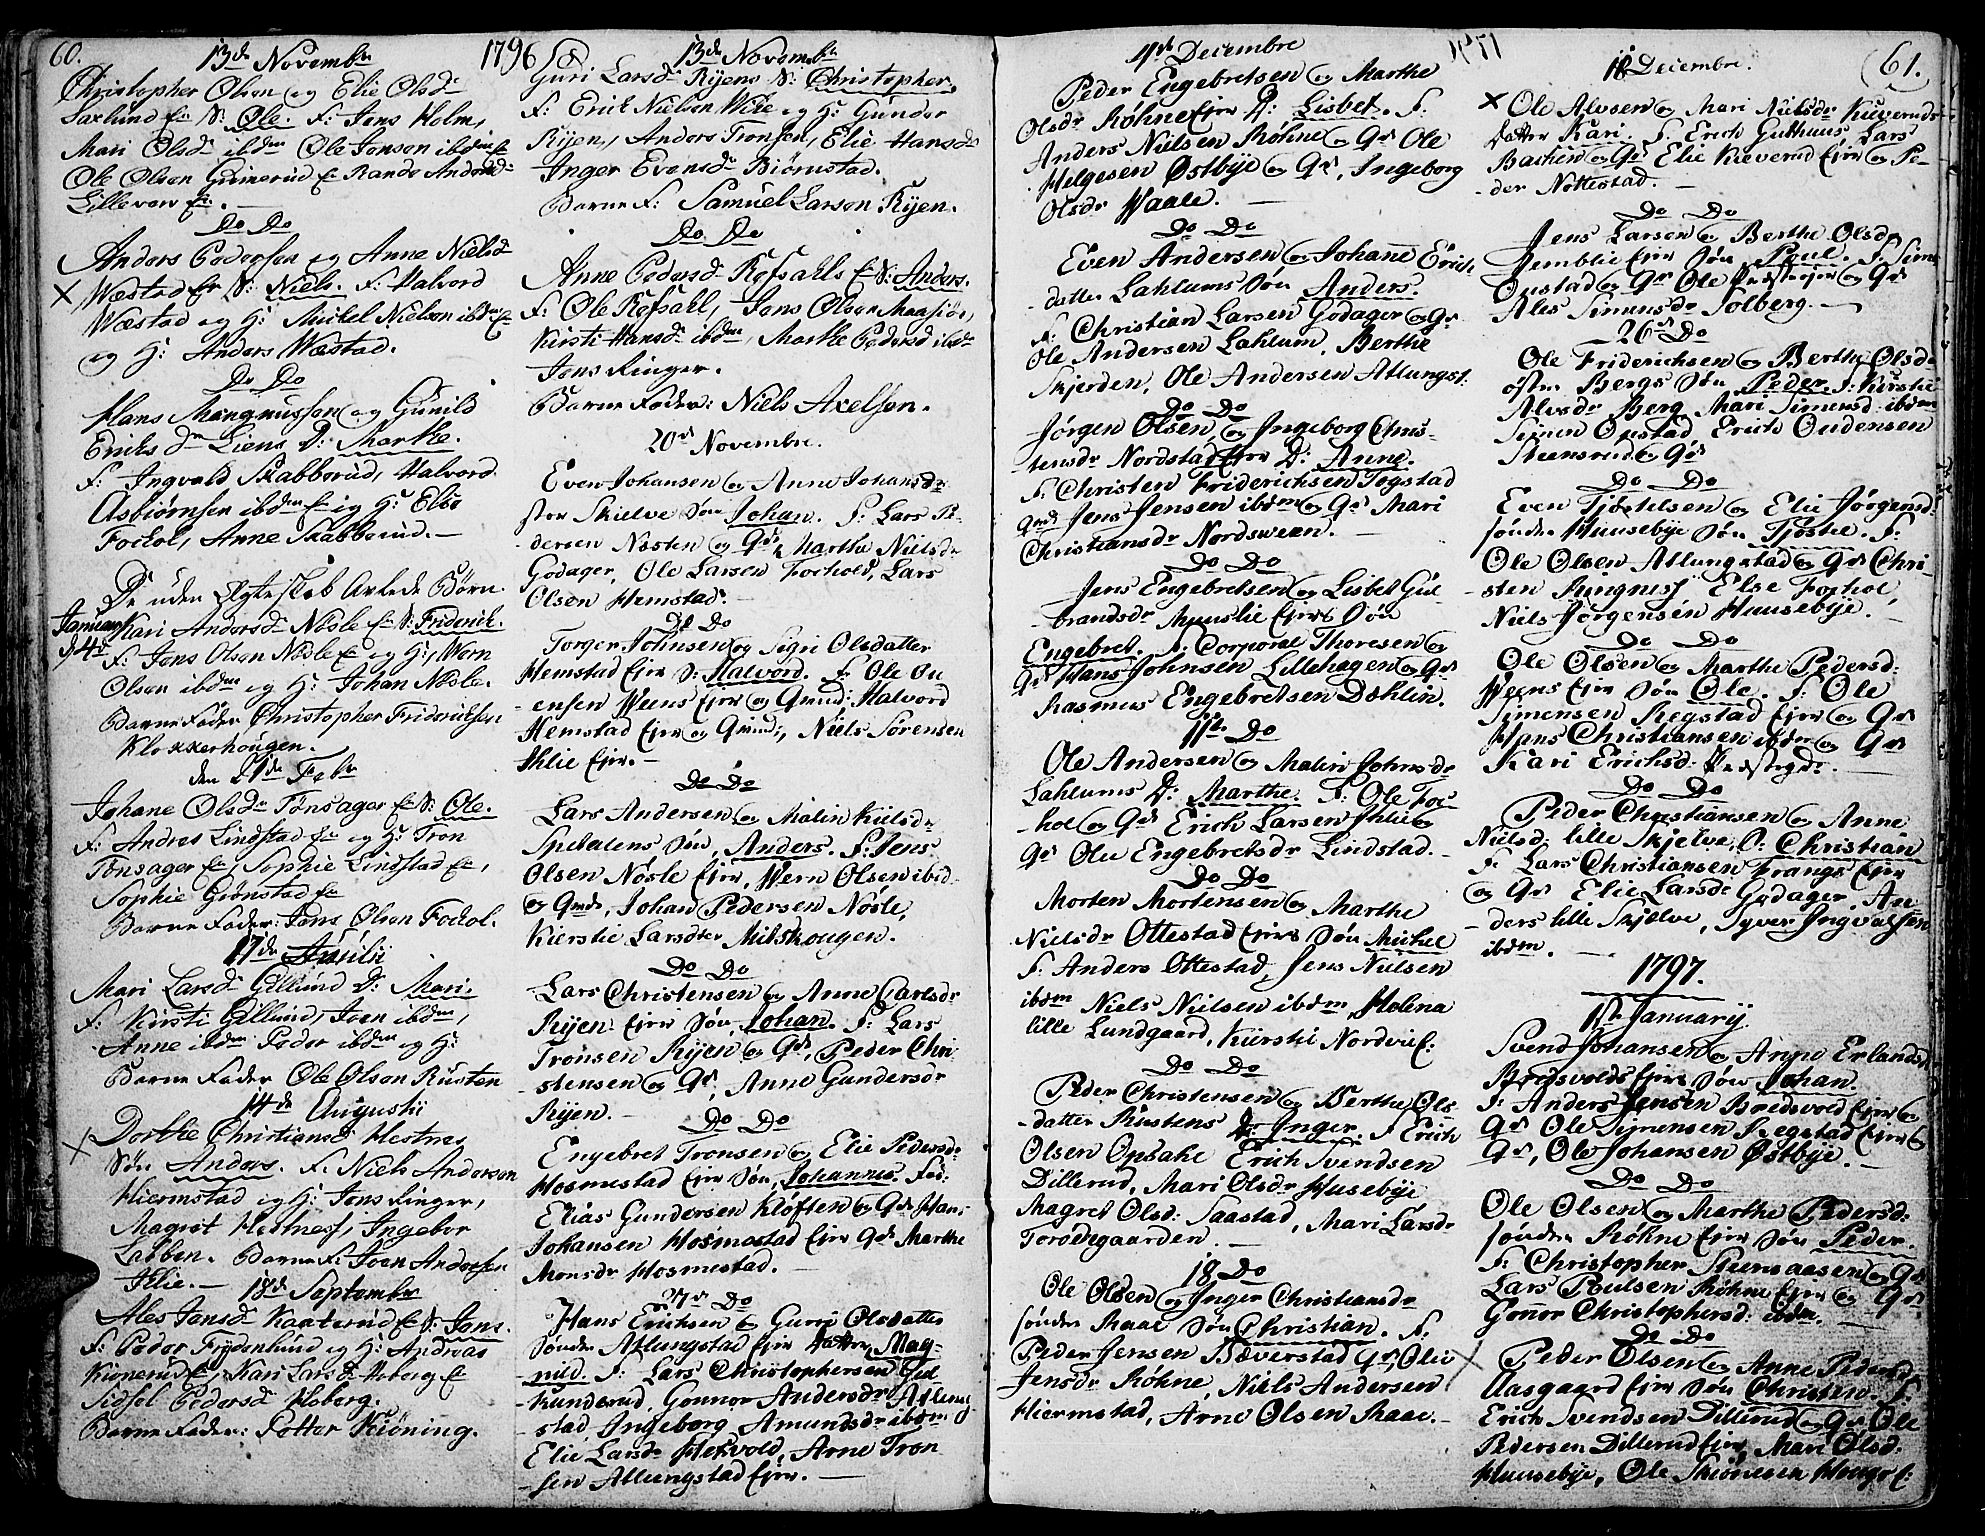 60.
1796
13de Novembr
Christopher Olsen og Elie Olsdr
Saxlund Er S: Ole. F: Jens Holm,
Mari Olsdr ibdm Ole Jensen ibdm
Ole Olsen Grimerud Er Rande Andersd:
Lilleveen Er. —
Do Do
Anders Pedersen og Anne Nielsd
X Wæstad Er S: Niels. F: Halvord
Wæstad og H: Mickel Nielsen ibdm
og H: Anders Wæstad.
Do Do
Hans Mangnussen og Gunild
Eriks dr Liens D: Marthe.
F: Ingvald Skabberud, Halvord
Asbiørnsen ibdm Er og H: Else
Fockol, Anne Skabberud. —
De uden Ægteskab Avlede Børn
Januar d 4de
Kari Andersdr Nøsle Er S: Friderich.
F: Jens Olsen Nøsle Er og H:, Wern
Olsen ibdm og H: Johan Nøsle.
Barne Fader Christopher Friderichsen
Klokkerhougen.
den 21de Febr
Johane Olsdr Tønsager Er S: Ole.
F: Andres Lindstad Er og H: Tron
Tønsager Er, Sophie Lindstad Er,
Sophie Grønstad Er
Barne Fader: Jens Olsen Fockol.
17de
Mari Larsd Gillund D: Mari.
F: Kirsti Gillund, Joen ibdm,
Anne ibdm Peder ibdm og H:
Barne Fader Ole Olsen Rusten
14de Augustii
X Dorthe Christiansd Hestnes
Søn Anders. F: Niels Andersen
Hiermstad og H: Jens Ringer,
Magret Hestnes, Ingebor
Labben. Barne F: Joen Andersen
Ihlie. —
18de Septembr
Ales Jensd Kaaterud Er S: Jens.
F: Peder Frydenlund og H: Andreas
Kionerud Er, Kari Larsd Hoberg Er
Sidsel Pedersd Hoberg.
Barne Fader: Petter Kiøning.
13de Novembr
Guri Larsdr Ryens S: Christopher.
F: Erick Nielsen Wiile og H: Gunder
Ryen, Anders Tronsen, Elie Hansd
Inger Evensdr Biørnstad.
Barne F: Samuel Larsen Ryen.
Do Do
Anne Pedersd Refsahls Er S: Anders.
F: Ole Refsahl, Jens Olsen Maasiør,
Kirsti Hansdr ibdm, Marthe Pedersd ibdm
Jens Ringer.
Barne Fader: Niels Axelsen.
20de Novembre.
Even Johansen og Anne Johansdr
stor Skielve Søn Johan. F: Lars Pe-
dersen Næsten og Qde, Marthe Nielsdr
Godager, Ole Larsen Fockold, Lars
Olsen Hemstad. —
Do Do
Torger Johnsen og Sigri Olsdatter
Hemstad Ejer S: Halvord. F: Ole Ou
ensen Weens Ejer og Qvind: Halvord
Hemstad Ejer og Qvind:, Niels Sørensen
Ihlie Ejer. —
Do Do
Lars Andersen og Malin Kielsdr
Spitalens Søn Anders. F: Jens
Olsen Nøsle Ejer, Wern Olsen ibid
og Qvnd, Johan Pedersen Nøsle,
Kierstie Larsdter Milskougen.
Do Do
Lars Christensen og Anne Carlsdr
Ryen Ejer Søn Johan. F: Lars
Tronsen Ryen og Qde, Peder Chri-
stensen og Qd, Anne Gundersdr
Ryen. —
Do Do
Engebret Tronsen og Elie Pedersdr
Hosmestad Ejer Søn, Johannes. Fad:
Elias Gundersen Kløften og Qd Hans
Johansen Hosmestad Ejer Qd Marthe
Monsdr Hosmestad.
27de Do
Hans Erichsen og Gurri Olsdatter
søndre Atlungstad Ejer datter Mag-
nild. F: Lars Christophersen Gul
kunderud, Gonnor Andersdr Atlung
stad, Ingeborg Amundsdr ibdm
Elie Larsdr Hekvold, Arne Tron
sen Atlungstad Ejer. —
61.
11de Decembre
Peder Engebretsen og Marthe
Olsdr Røhne Ejer D: Lisbet. F:
Anders Nielsen Røhne og Qd Ole
Helgesen Østbye og Qd, Ingeborg
Olsdr Waale. —
Do Do
Even Andersen og Johane Erich
datter Lahlums Søn Anders.
F: Christian Larsen Godager og Qd
Ole Andersen Lahlum, Berthe
Skjerden, Ole Andersen Atlungst:
Do Do
Jørgen Olsen og Ingeborg Chris-
tensdr Nordstad Ejer D: Anne.
F: Christen Friderichsen Togstad
Qvnd Jens Jensen ibdm og Qd Mari
Christiansdr Nordsween. —
Do Do
Jens Engebretsen og Lisbet Gul-
brandsdr Hunslie Ejere Søn
Engebret. F: Corporal Thoresen og
Qd Hans Johnsen Lillehagen og Qd
Rasmus Engebretsen Dæhlin.
11te Do
Ole Andersen og Malin Johnsdr
Lahlums D: Marthe. F: Ole Foc-
hol og Qd Erich Larsen Ihlie og
Qd Olea Engebretsdr Lindstad. —
Do Do
Morten Mortensen og Marthe
Nielsdr Ottestad Ejere Søn Mickel
F: Anders Ottestad, Jens Nielsen
ibdm Niels Nielsen ibdm, Helena
lille Lundgaard, Kiersti Nordvie:
Do Do
Peder Christensen og Berthe Ols-
datter Rustens D: Inger. F: Erich
Olsen Opsahl Erich Svendsen
Dillerud, Mari Olsdr Husebye
Magret Olsd: Saastad, Mari Larsdr
Torødegaarden. —
18 Do
Ole Olsen og Inger Christiansdr
søndre Maae Søn Christian. F:
Peder Jensen Bæverstad Qd, Oliv
Jensdr Røhne, Niels Andersen
Hiermstad, Arne Olsen Maae. —
18 Decembre.
X Ole Alvsen og Mari Nielsdr Kieverud
datter Kari. F: Erich Guthuus Lars
Bachen og Qd Elie Kieverud Ejer og Pe-
der Nøttestad. —
Do Do
Jens Larsen og Berthe Olsdr
Jemblie Ejer Søn Poul. F: Simen
Opstad og Qd Ole Prestegr og Qd
Ales Simensdr Solberg. —
26de Do
Ole Friderichsen og Berthe Olsdr
østre Bergs Søn Peder. F: Kirstie
Alvsdr Berg Mari Simensd ibdm
Simen Opstad Erich Oudensen
Steensrud og Qd
Do Do
Even Tjøstelsen og Elie Jørgensd:
søndre Huusebye Søn Tjøste. F:
Ole Olsen Atlungstad og Qd Chri-
sten Ringnes Else Fockol,
Niels Jørgensen Huusebye. —
Do Do
Ole Olsen og Marthe Pedersd:
Weens Ejer Søn Ole. F: Ole
Simensen Regstad Ejer og Qd
Hans Christiansen ibdm og Qd
Kari Erichsd: Prestegr. —
Do Do
Peder Christiansen og Anne
Nielsd: lille Skjelve, S: Christian
F: Lars Christiansen Frangs Ejer
og Qd Elie Larsdr Godager, An-
ders lille Skjelve, Syver Ingvalsen
ibdm. —
1797.
1te Januarij
Svend Johansen og Anne Erlandsd
Bredsvolds Ejer Søn Johan.
F: Anders Jensen Bredsvold Ejer og
Qd Ole Simensen Regstad Ejer og
Qd, Ole Johansen Østbye. —
Do Do
Ole Olsen og Marthe Pedersd:
søndre Røhne Ejer Søn Peder.
F: Christopher Steensaasen og Qd
Lars Poulsen Røhne Ejer og Qd
Gonor Christophersd: ibdm. —
Do Do
X Peder Olsen og Anne Pedersd
Aasgaard Ejer Søn Christen. F:
Erich Svendsen Dillerud og Qd Ole
Pedersen Dillerud Ejer, Mari Olsd:
Huusebye, Ole Skiønesen Houge E: